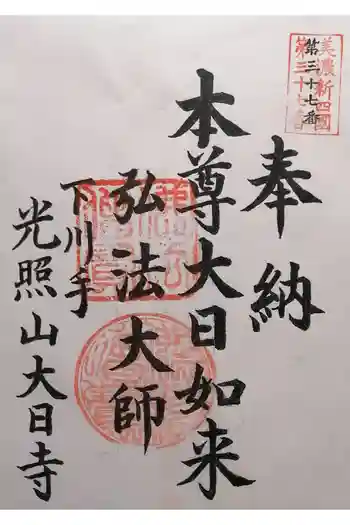 美濃新四國
第三十七番
奉納
本尊大日如来
弘法大師
下川手
光照山大日寺